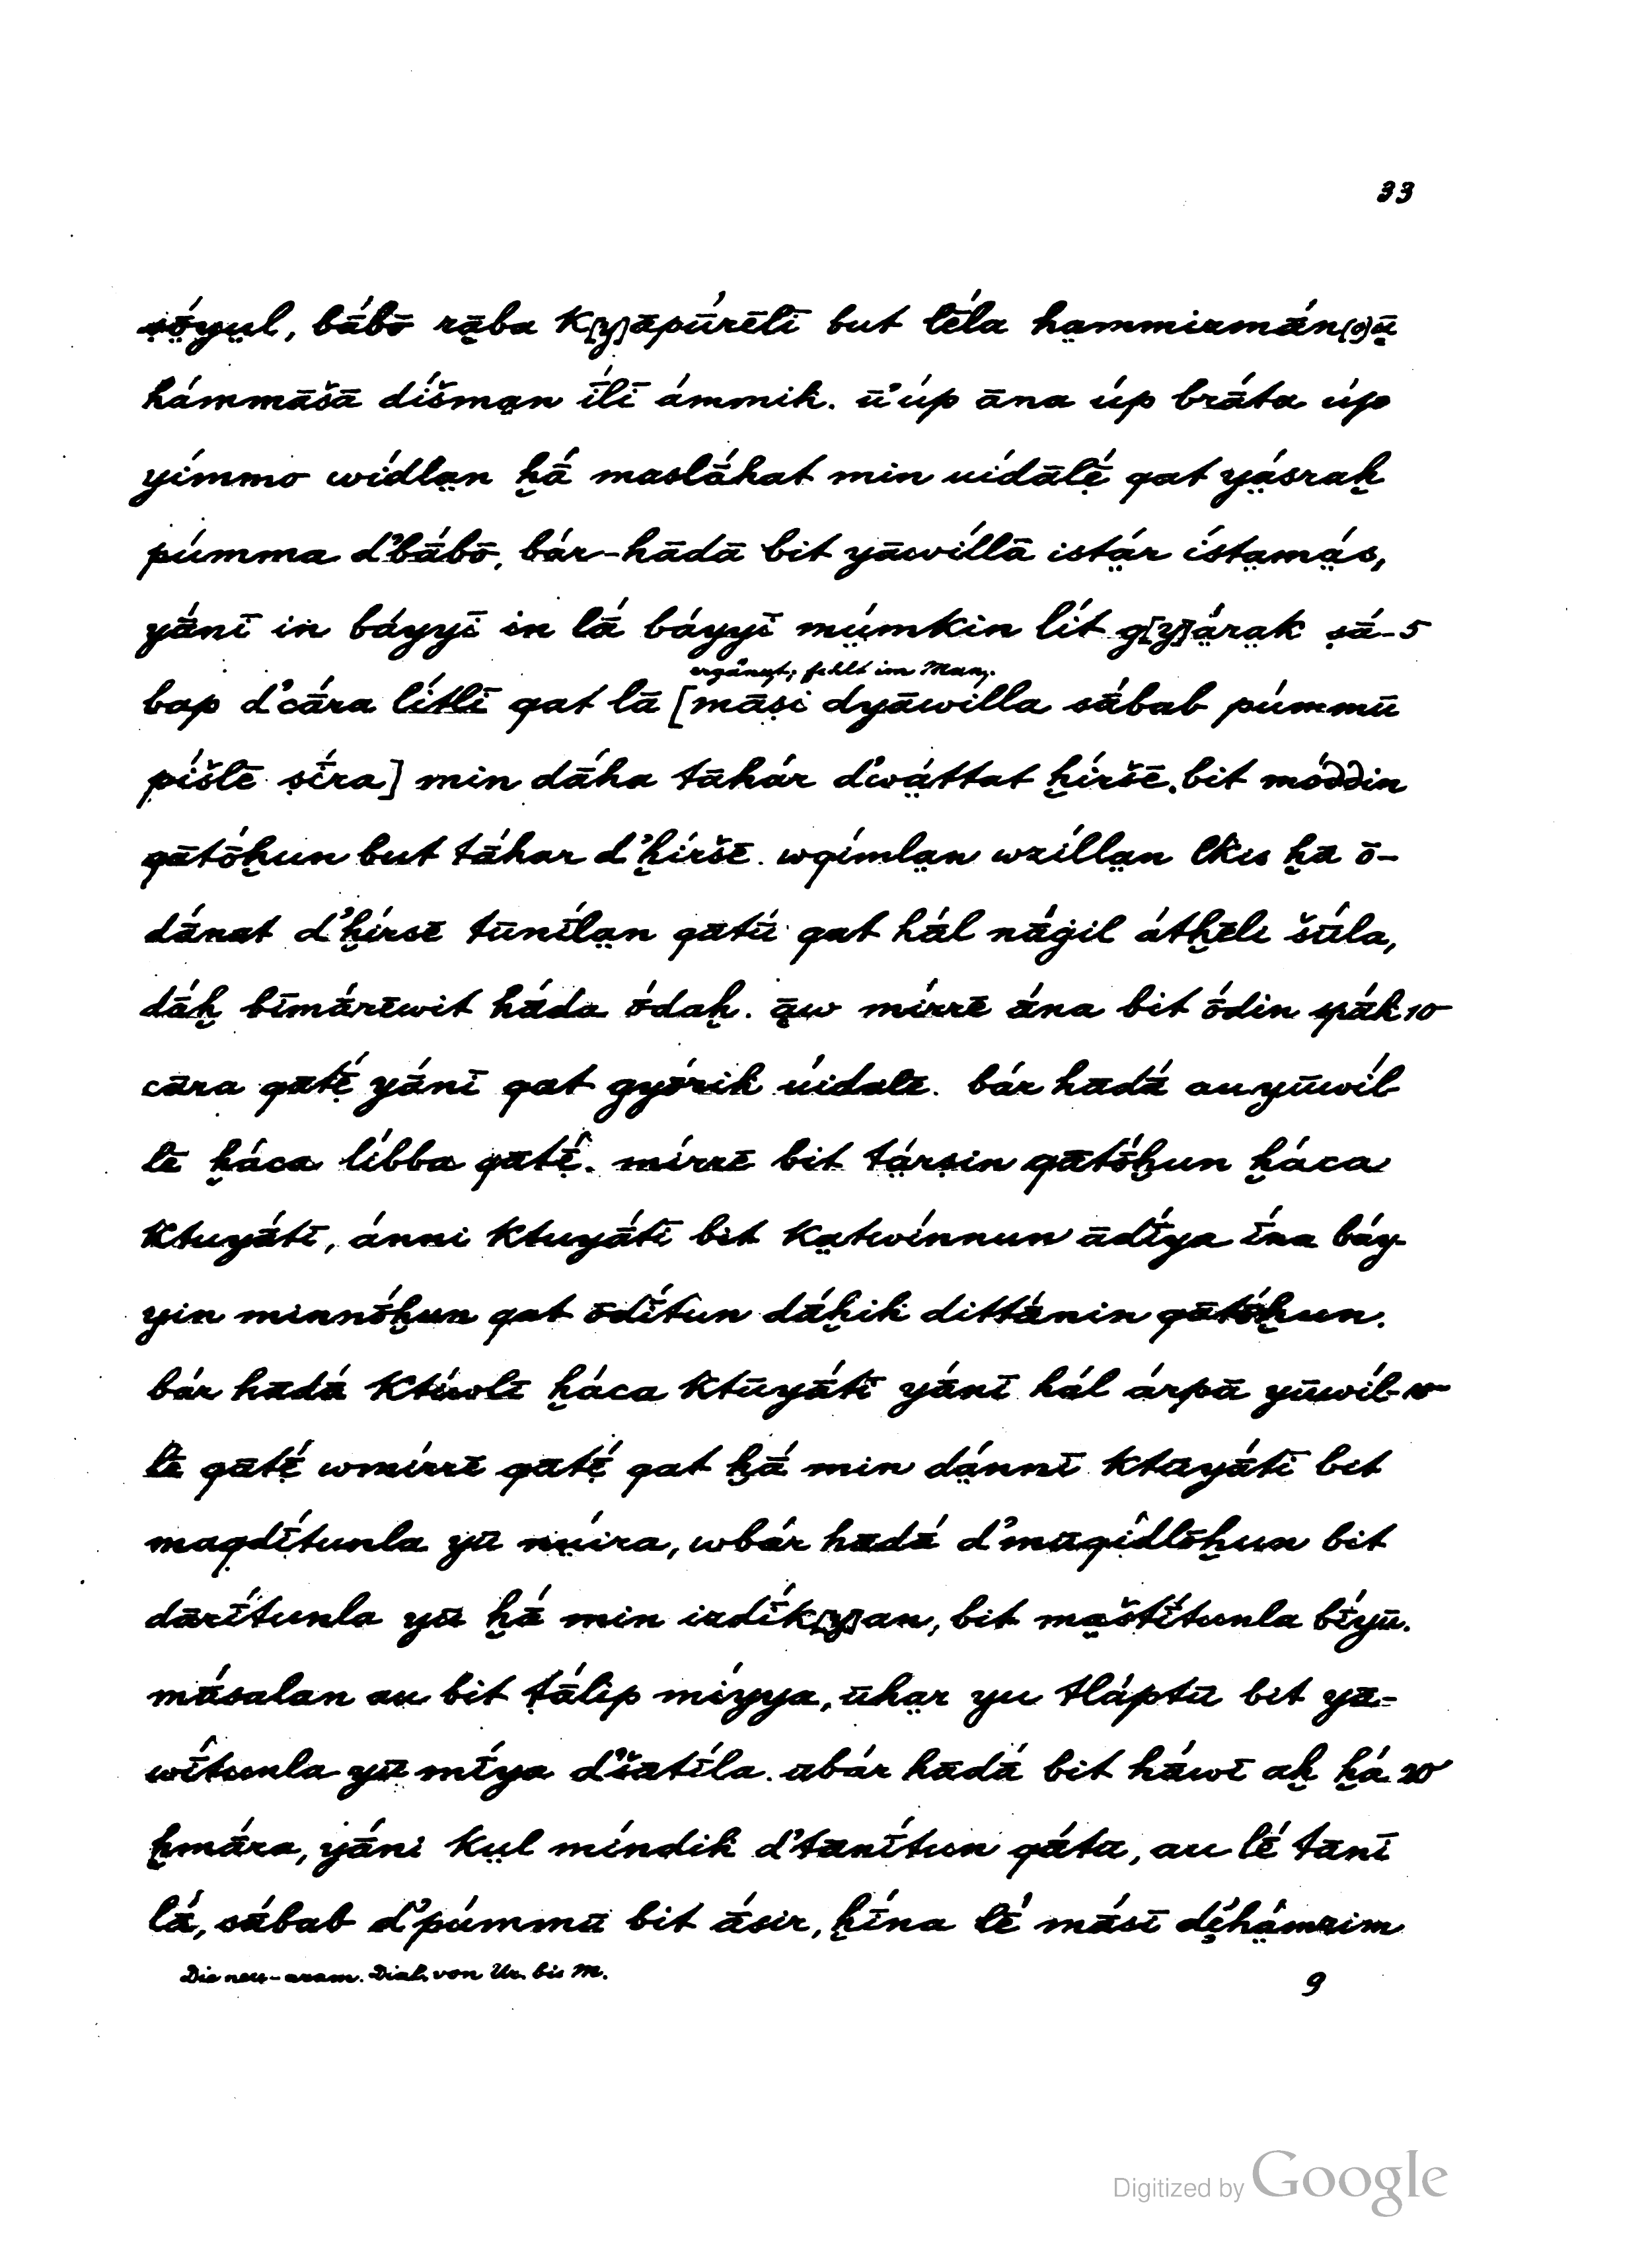 33
ṣṓyul, bā́bō rāba k[y]āpū́rēlī but lḗla hammizmā́n(ə)ū
hámmāšā díšman ī́lī ámmik. ū’úp āna úp brā́ta úp
yímmo wídlan ḫā́ maslā́hat min uídālḗ qat yásraḫ
púmma d’bā́bō, bár-hādā bit yāwíllā istár ístamás,
yā́nī in báyyī in lā́ báyyī múmkin lít g[y]árak ṣā- 5
bap d’cā́ra lítlī qat lā [māṣi dyāwílla sā́bab púmmū
ergänzt; fehlt im Man.
píšlē ṣī́ra] min dā́ha ṭāhár d’wáttat ḫíršē. bit móδδin
qātṓḫun but ṭáhar d’ḫíršē. wqímlan wzíllan lkis ḫa ō-
dánat d’ḫírsē tūnī́lan qātū́ qat hál nā́ġil átḫēli šū́la,
dā́ḫ bīmā́rēwit hā́da ṓdaḫ. āw mírrē ā́na bit ṓdin ɣák 10
cāra qātḗ yā́nī qat gyṓrik úidalē. bár hādā́ au yūwíl
lē ḫáca líbba qātḗ. mírrē bit ṭárṣin qātṓḫun ḫáca
ktuyā́tī, ánni ktuyā́tī bit katwínnun ādī́ya ī́na báy-
yin minnṓḫun qat ōdī́tun dā́ḫik dittā́nin qātṓḫun.
bár hādā́ ktúwlī ḫáca ktūyā́tī yā́nī hál árpā yūwíl- 15
lē qātḗ wmírrē qātḗ qat ḫā́ min dánnī ktūyā́tī bit
maqdī́tunla yū núira, wbár hādā́ d’mūqîdlōḫun bit
dārī́tunla yū ḫā́ min izdī́k[y]an, bit maštī́tunla bī́yū.
mā́salan au bit ṭā́lip míyya, ūhar yu tláptū bit yā-
wī́tunla yū mī́ya d’šātī́la. ūbár hādā́ bit hā́wī aḫ ḫá 20
ḫmā́ra, yā́ni kul míndik d’tānī́tun qā́tū, au lḗ tānī
lā́, sā́bab d’púmmū bit ā́sir, ḫī́na lḗ mā́sī dihámzim
Die neu-aram. Dial. von Ur. bis M.
9
Digitized by Google